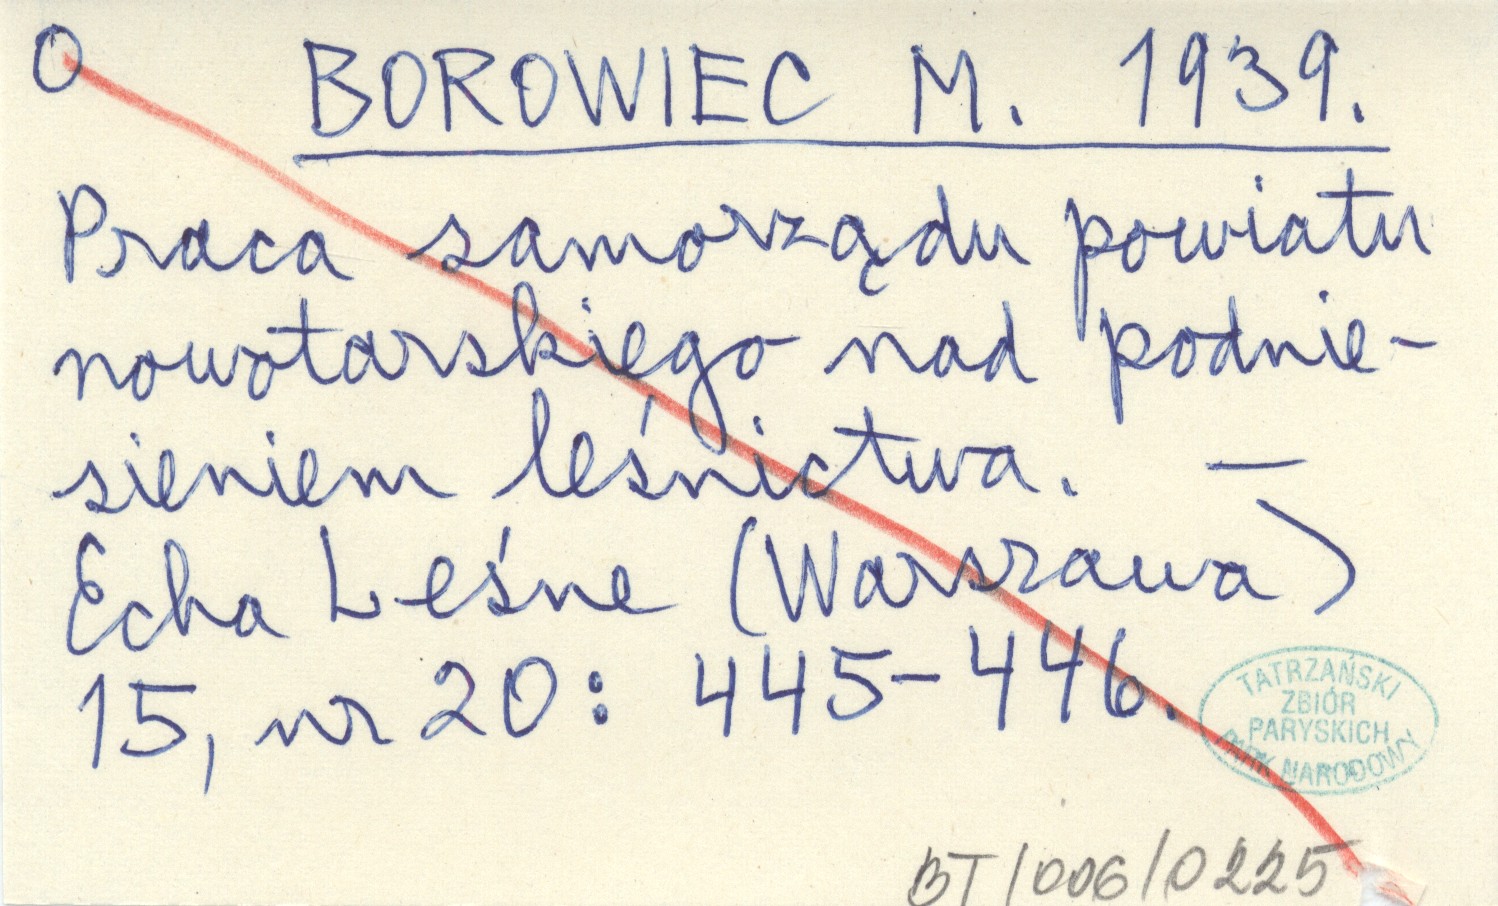 O BOROWIEC M. 1939.
Praca samorządu powiatu
nowotarskiego nad podnie-
sieniem leśnictwa. —
Echa Leśne (Warszawa)
15, nr 20: 445-446.
TATRZAŃSKI
ZBIÓR
PARYSKICH
PARK NARODOWY
BT/006/0225